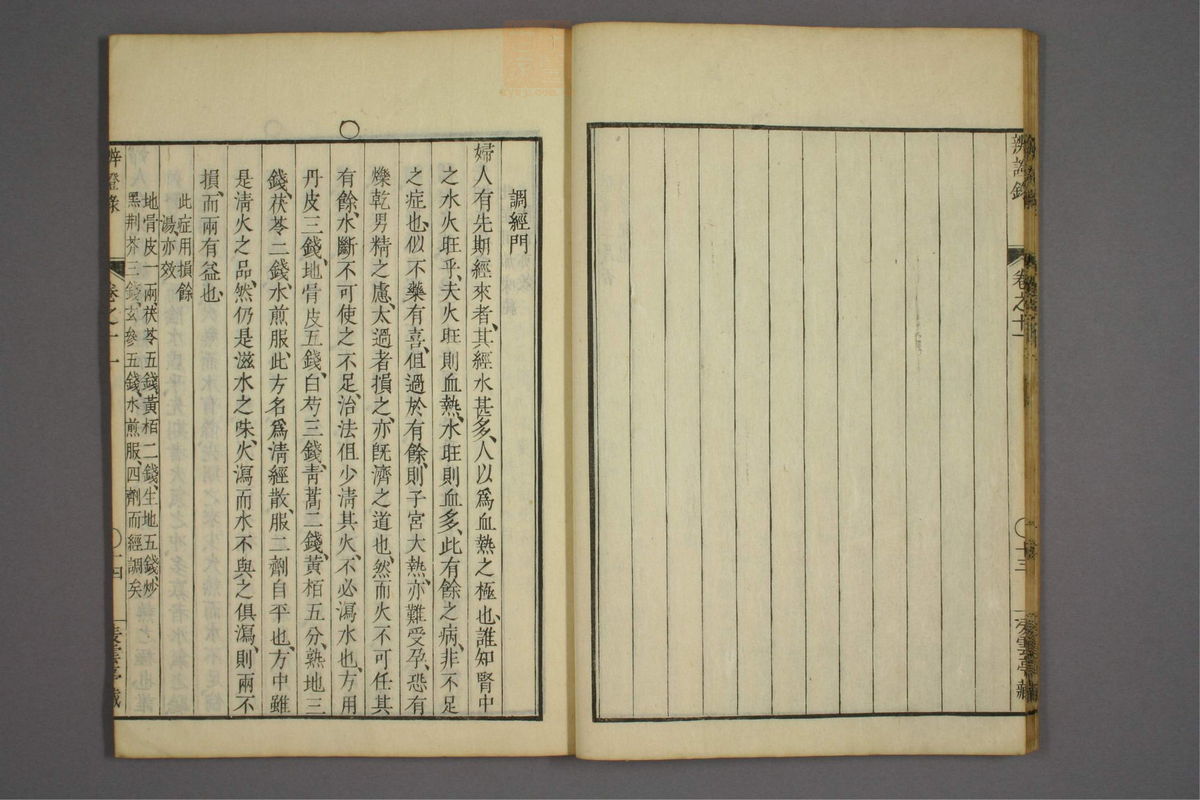 辨證錄
卷之十一
十三
調經門
婦人有先期經來者、其經水甚多、人以爲血熱之極也、誰知腎中
之水火旺乎、夫火旺則血熱、水旺則血多、此有餘之病、非不足
之症也、似不藥有喜、但過於有餘、則子宮大熱、亦難受孕、恐有
爍乾男精之慮、太過者損之、亦旣濟之道也、然而火不可任其
有餘、水斷不可使之不足、治法但少淸其火、不必瀉水也、方用
丹皮三錢、地骨皮五錢、白芍三錢、靑蒿二錢、黃栢五分、熟地三
錢、茯苓二錢、水煎服、此方名爲淸經散、服二劑自平也、方中雖
是淸火之品、然仍是滋水之味、火瀉而水不與之俱瀉、則兩不
損、而兩有益也、
此症用損餘
湯亦效
地骨皮一兩、茯苓五錢、黃栢二錢、生地五錢、炒
黑荆芥三錢、玄參五錢、水煎服四劑而經調矣
辨證錄
卷之十一
十四